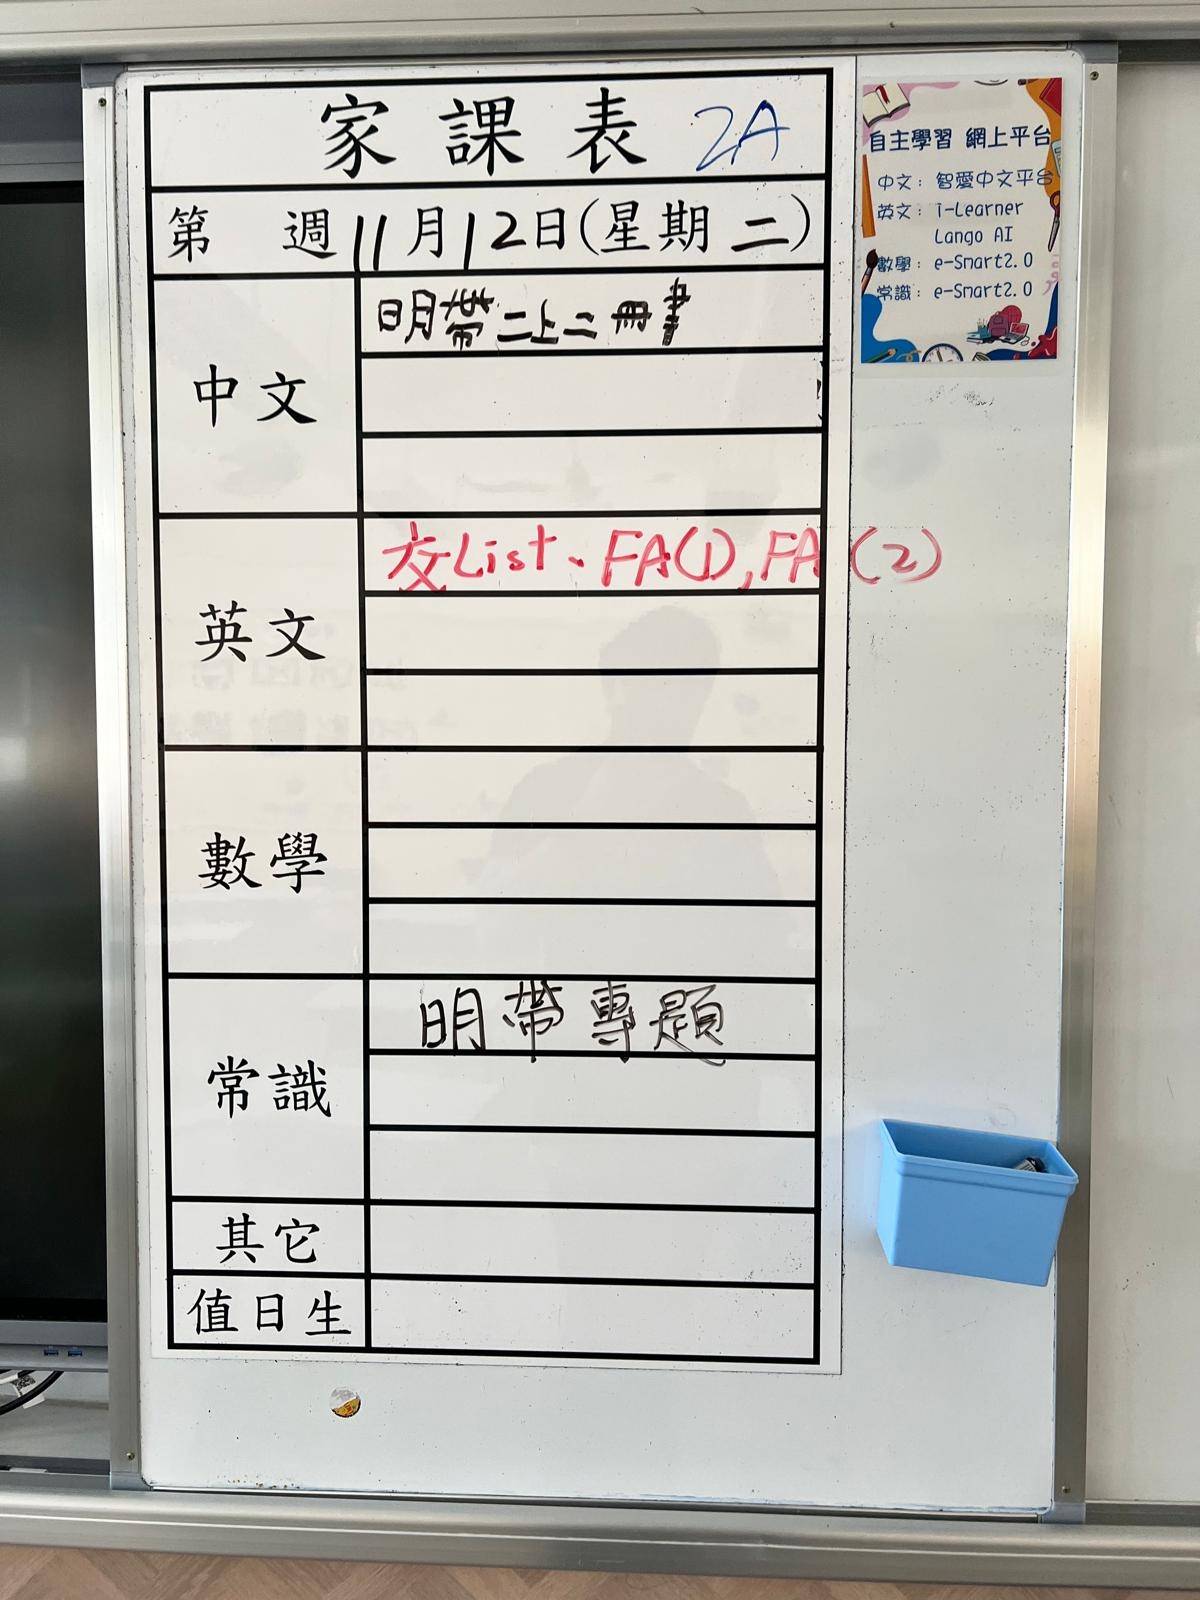 家課表 2A
第 週 11月12日(星期二)
中文
明帶二上二冊書
英文
交List、FA(1),FA(2)
數學
常識
明帶專題
其它
值日生
自主學習 網上平台
中文: 智愛中文平台
英文: i-Learner
Lango AI
數學: e-Smart2.0
常識: e-Smart2.0